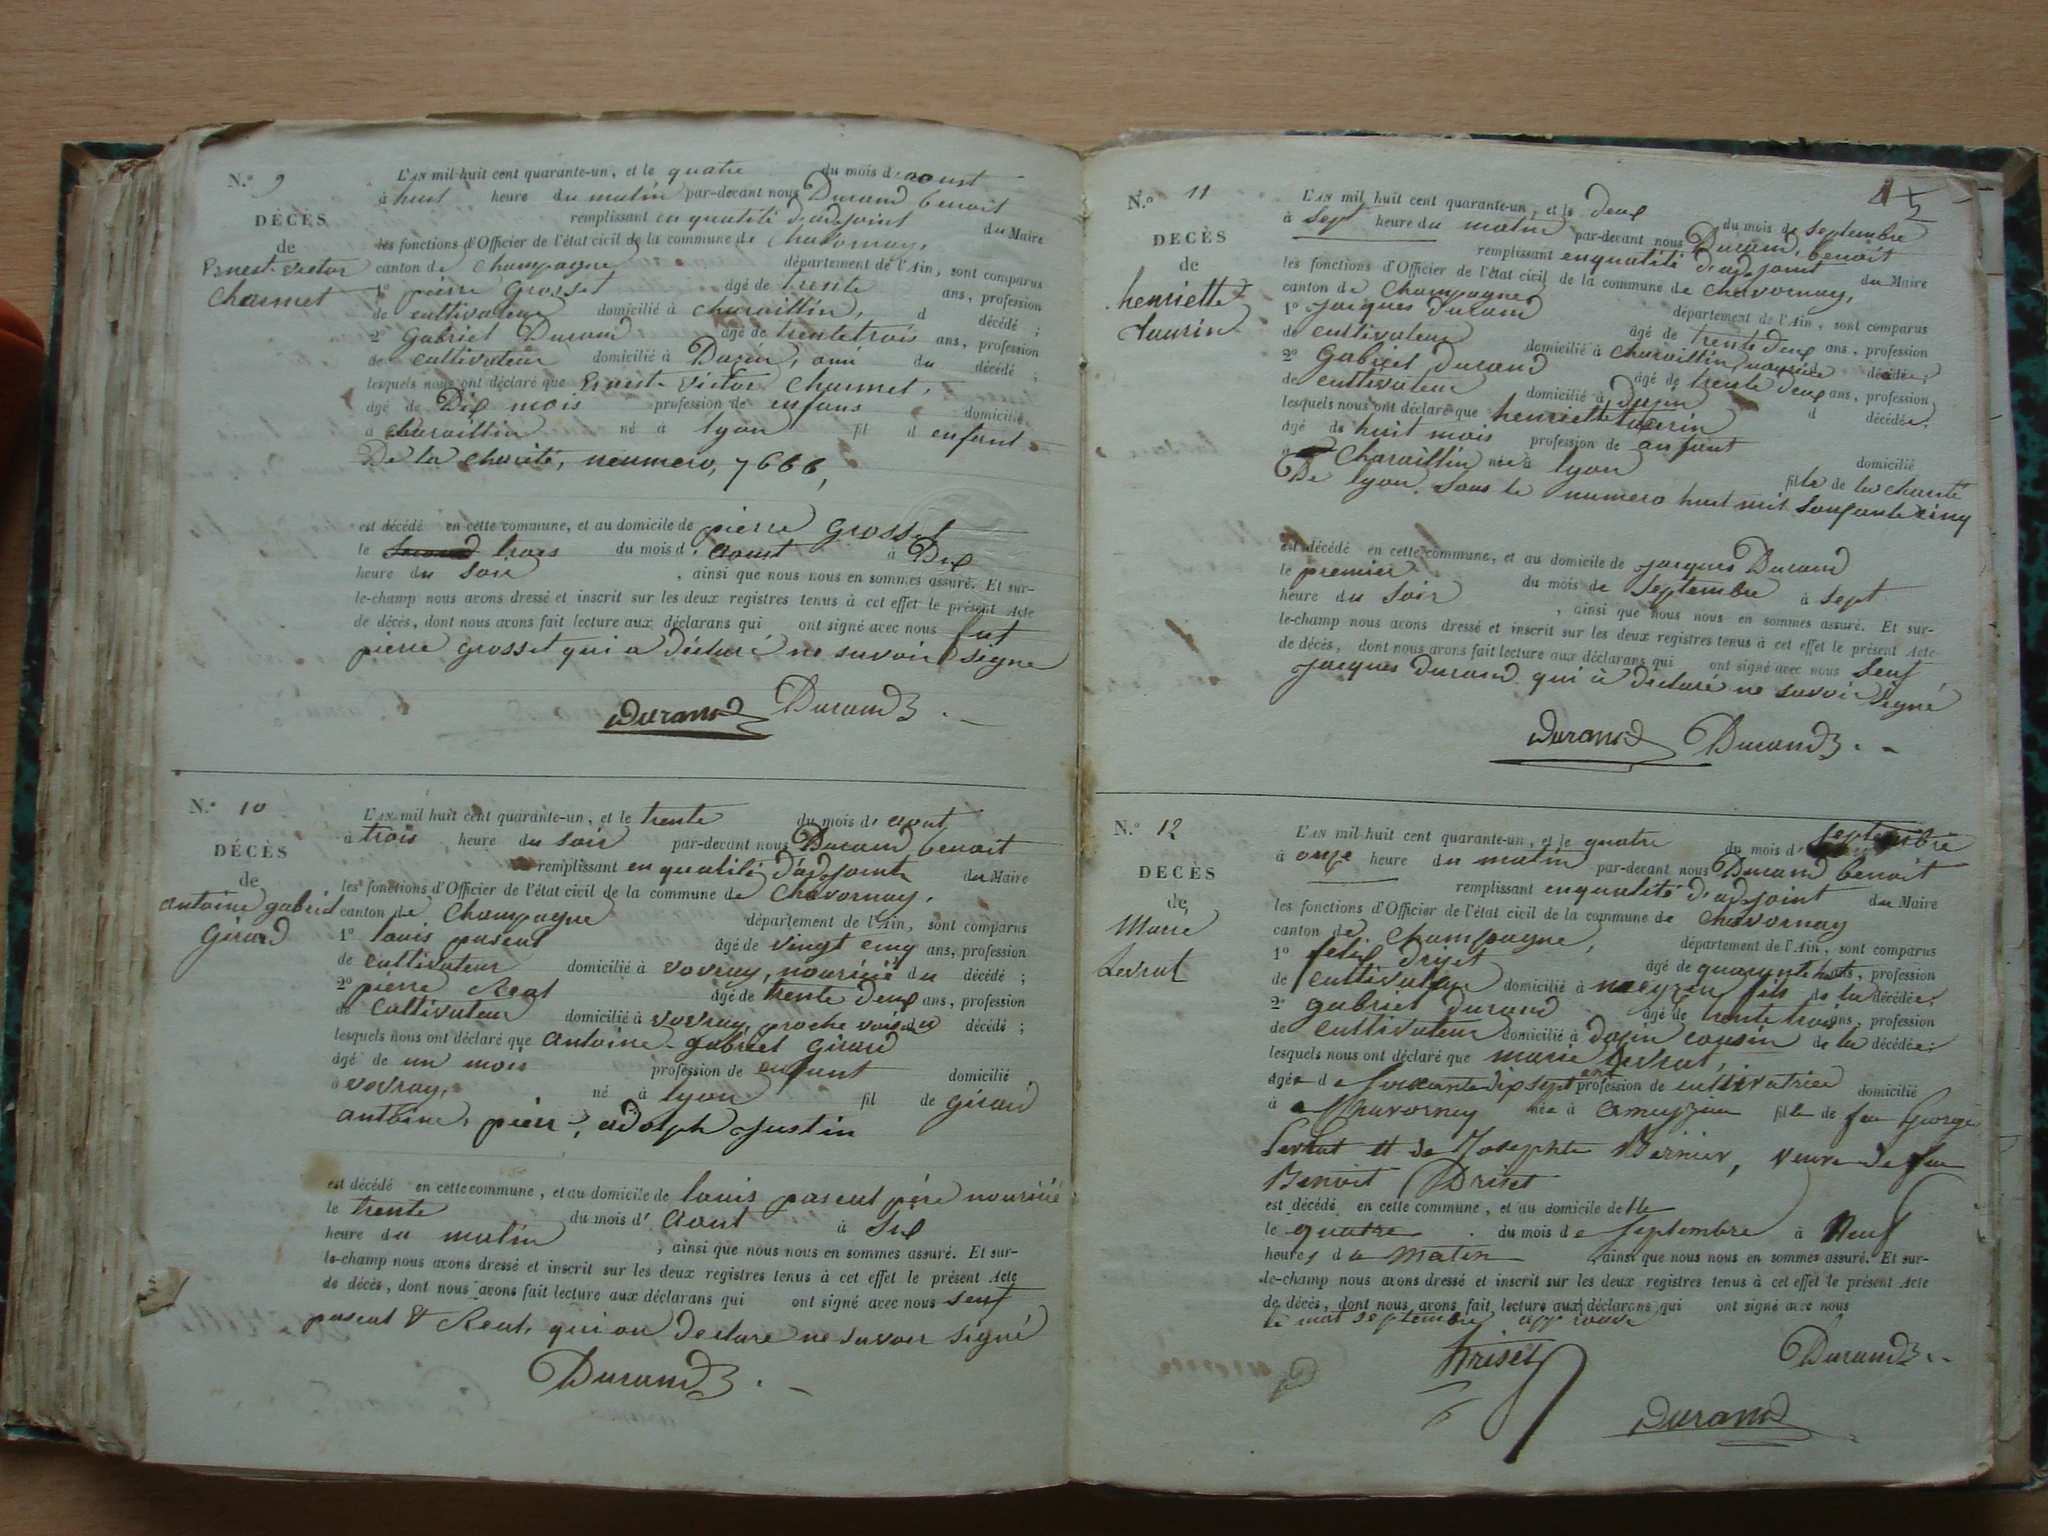 N.º 9
DÉCÈS
de
Ernest victor
Charmet
L'AN mil-huit cent quarante-un, et le quatre du mois d'aoust
à huit heure du matin par-devant nous Durand benoit
remplissant en qualité d'adjoint du Maire
les fonctions d'Officier de l'état civil de la commune de Chavornay,
canton de Champagne département de l'Ain, sont comparus
1º pierre Grosset âgé de trente ans, profession
de cultivateur domicilié à charaillin, d décédé ;
2º Gabriel Durand âgé de trente trois ans, profession
de cultivateur domicilié à Dazin, ami du décédé ;
lesquels nous ont déclaré que Ernest victor Charmet,
âgé de Dix mois profession de enfans domicilié
à charaillin né à lyon fil d enfant
De la charité, neumero, 7666,
est décédé en cette commune, et au domicile de pierre Grosset
le trois du mois d'aoust à Dix
heure du soir , ainsi que nous nous en sommes assuré. Et sur-
le-champ nous avons dressé et inscrit sur les deux registres tenus à cet effet le présent Acte
de décès, dont nous avons fait lecture aux déclarans qui ont signé avec nous
pierre grosset qui a déclaré ne savoir signe
Durand Durand
N.º 10
DÉCÈS
de
antoine gabriel
Girard
L'AN mil huit cent quarante-un, et le trente du mois d'aout
à trois heure du soir par-devant nous Durand benoit
remplissant en qualité d'adjoint du Maire
les fonctions d'Officier de l'état civil de la commune de Chavornay,
canton de Champagne département de l'Ain, sont comparus
1º louis pascal âgé de vingt cinq ans, profession
de cultivateur domicilié à vovray, nouricié du décédé ;
2º pierre Reat âgé de trente deux ans, profession
de cultivateur domicilié à vovray, proche voisin du décédé ;
lesquels nous ont déclaré que antoine gabriel Girard
âgé de un mois profession de enfant domicilié
à vovray, né à lyon fil de Girard
antoine, pierr, adolph Justin
est décédé en cette commune, et au domicile de louis pascal père nouricié
le trente du mois d'aout à Six
heure du matin , ainsi que nous nous en sommes assuré. Et sur-
le-champ nous avons dressé et inscrit sur les deux registres tenus à cet effet le présent Acte
de décès, dont nous avons fait lecture aux déclarans qui ont signé avec nous seuf
pascal & Reat, qui on declare ne savoir signé
Durand
N.º 11
DÉCÈS
de
henriette
Laurin
L'AN mil huit cent quarante-un, et le deux du mois de septembre
à sept heure du matin par-devant nous Durand, benoit
remplissant en qualité d'adjoint du Maire
les fonctions d'Officier de l'état civil de la commune de chavornay,
canton de Champagne département de l'Ain, sont comparus
1º jacques durand âgé de trente deux ans, profession
de cultivateur domicilié à charaillin nouricié décédée,
2º Gabriel durand âgé de trente deux ans, profession
de cultivateur domicilié à dazin d décédée,
lesquels nous ont déclaré que henriette Laurin
âgé de huit mois profession de anfant domicilié
à Charaillin née à lyon fille de la charité
De lyon. sous le numero huit mil soifante cinq
est décédé en cette commune, et au domicile de jacques Durand
le premier du mois de septembre à sept
heure du soir , ainsi que nous nous en sommes assuré. Et sur-
le-champ nous avons dressé et inscrit sur les deux registres tenus à cet effet le présent Acte
de décès, dont nous avons fait lecture aux déclarans qui ont signé avec nous seuf
jacques durand qui a déclaré ne savoir signé
Durand Durand
N.º 12
DÉCÈS
de
Marie
Levrat
L'AN mil huit cent quarante-un, et le quatre du mois d septembre
à onze heure du matin par-devant nous Durand benoit
remplissant en qualité d'adjoint du Maire
les fonctions d'Officier de l'état civil de la commune de Chavornay
canton de Champagne, département de l'Ain, sont comparus
1º felix Driset âgé de quarante huit ans, profession
de cultivateur domicilié à fils de la décédée,
2º gabriel durand âgé de trente trois ans, profession
de cultivateur domicilié à dazin cousin de la décédée;
lesquels nous ont déclaré que marie Levrat,
âgée de soixante dix sept ans profession de cultivatrice domicilié
à Chavornay née à ameyzieu fille de feu George
Levrat et de Josephte Bernier, veuve de feu
Benoit Driset
est décédé en cette commune, et au domicile delle
le quatre du mois de septembre à Neuf
heures du Matin ainsi que nous nous en sommes assuré. Et sur-
le-champ nous avons dressé et inscrit sur les deux registres tenus à cet effet le présent Acte
de décès, dont nous avons fait lecture aux déclarans qui ont signé avec nous
le mot septembre approuvé
Driset Durand
Durand